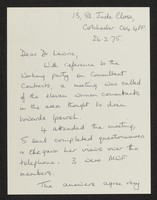 13, St. Jude Close,
Colchester CO4 4PP.
26.2.75.
Dear Dr Lawrie,
With reference to the
Working party on Consultant
Contracts, a meeting was called
of the eleven women consultants
in the area thought to drain
towards Ipswich.
4 attended the meeting,
5 sent completed questionnaires
& the gave her views over the
telephone. 3 were MWF
members.
The answers agree very